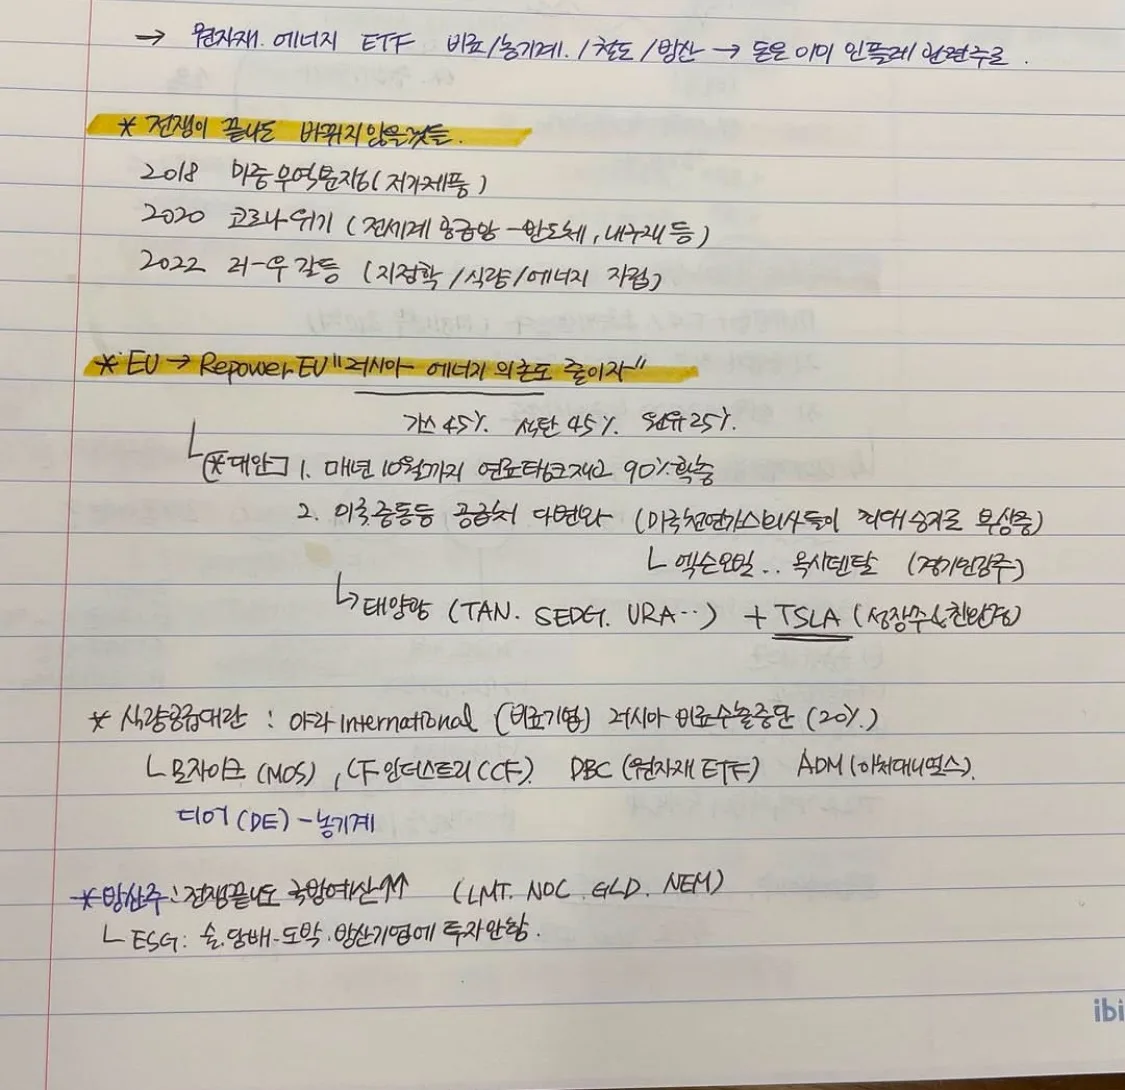 → 원자재. 에너지 ETF 비료/농기계./철도/방산 → 돈은 이미 인플레 관련주로.
* 전쟁이 끝나도 바뀌지 않은것들.
2018 미중무역분쟁(저가제품)
2020 코로나위기 (전세계 공급망 - 반도체, 내구재 등)
2022 러-우 갈등 (지정학/식량/에너지 자립)
* EU → Repower EU "러시아 에너지 의존도 줄이자"
가스 45%. 석탄 45%. 원유 25%.
└ (*대안) 1. 매년 10월까지 연료탱크재고 90% 확충
2. 미국중동등 공급처 다변화 (미국천연가스회사들이 최대 승자로 부상중)
└ 엑슨모빌.. 옥시덴탈 (경기민감주)
↳ 태양광 (TAN. SEDG. URA..) + TSLA (성장주&친환경)
* 식량공급대란 : 야라 International (비료기업) 러시아 비료수출중단 (20%.)
└ 모자이크 (MOS), CF 인더스트리 (CF). DBC (원자재 ETF) ADM (아처대니얼스).
디어 (DE) - 농기계
* 방산주 : 전쟁끝나도 국방예산↑↑ (LMT. NOC. GLD. NEM)
└ ESG : 술.담배.도박.방산기업에 투자안함.
ibi